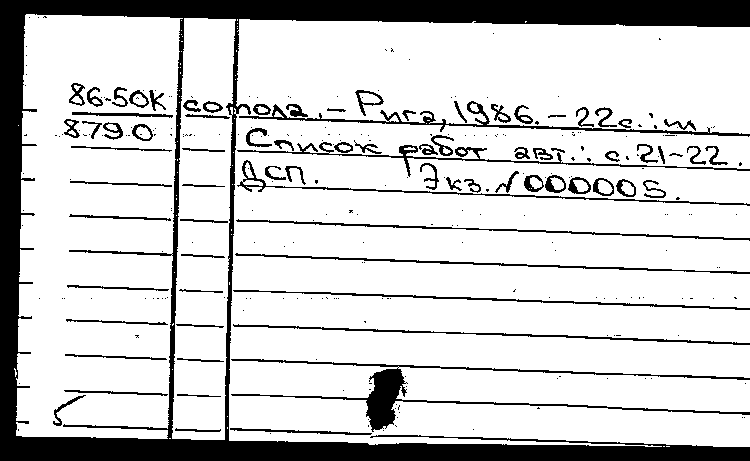 86-50К сотола. – Рига, 1986. – 22с.: ил.
8790 Список работ авт.: с. 21-22.
ДСП. Экз. №000005.